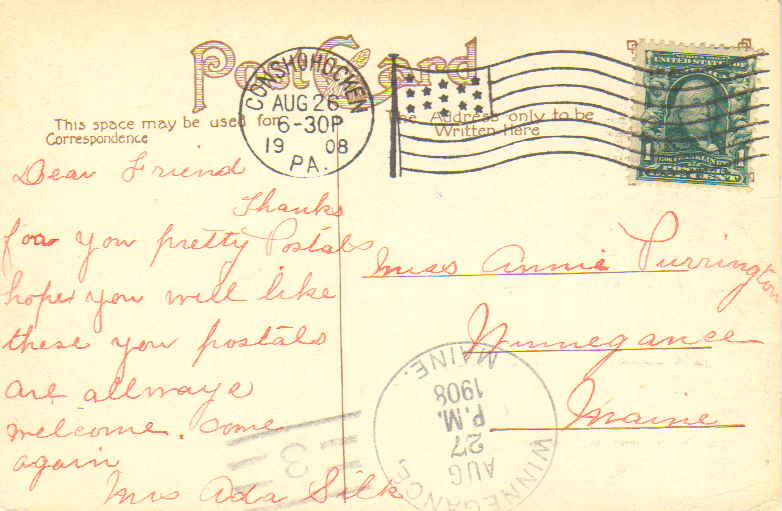 Post Card
CONSHOHOCKEN
AUG 26
6-30P
19 08
PA.
This space may be used for
Correspondence
The Address only to be
Written Here
UNITED STATES OF
POSTAGE
Dear Friend
Thanks
for you pretty Postals
hope you will like
these you postals
are allways
welcome. Come
again
Mrs Ada Silk
Miss Annie Purrington
Winnegance
Maine
WINNEGANCE
AUG
27
P.M.
1908
MAINE.
3